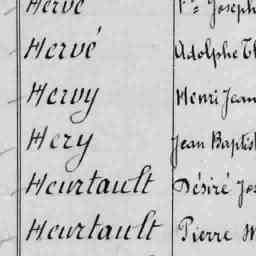 Hervé Fs Joseph
Hervé Adolphe
Hervy Henri Jean
Hery Jean Baptis
Heurtault Désiré Jos
Heurtault Pierre